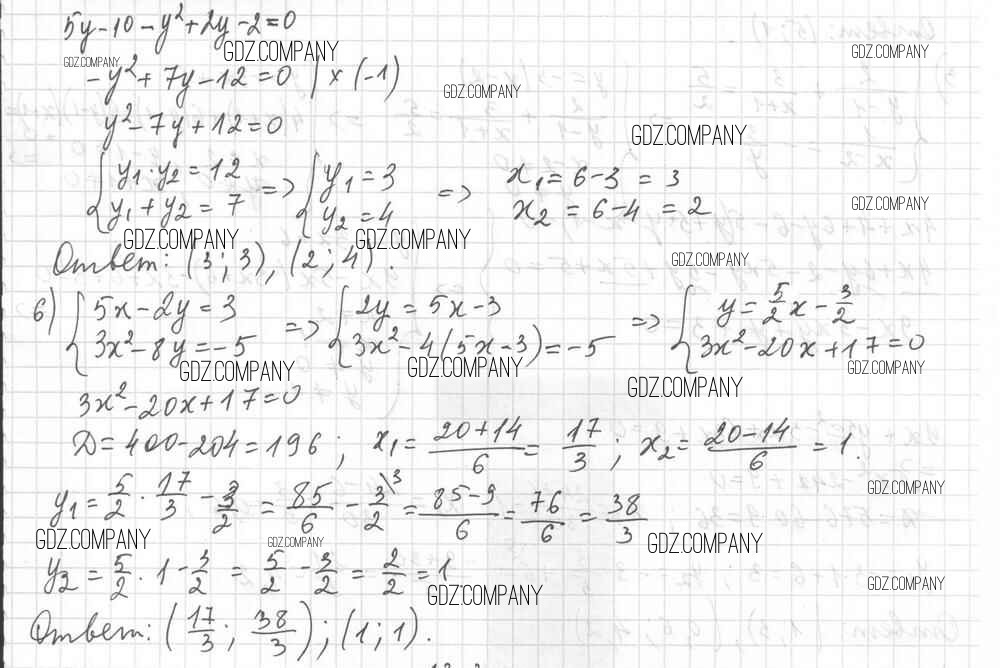 5y-10-y²+2y-2=0
GDZ.COMPANY GDZ.COMPANY GDZ.COMPANY
-y²+7y-12=0 | ×(-1) GDZ.COMPANY
y²-7y+12=0 GDZ.COMPANY
{ y₁·y₂=12 => { y₁=3 => x₁=6-3=3
y₁+y₂=7 y₂=4 x₂=6-4=2 GDZ.COMPANY
GDZ.COMPANY GDZ.COMPANY
Ответ: (3;3), (2;4). GDZ.COMPANY
б) { 5x-2y=3 => { 2y=5x-3 => { y=5/2x-3/2
3x²-8y=-5 3x²-4(5x-3)=-5 3x²-20x+17=0
GDZ.COMPANY GDZ.COMPANY GDZ.COMPANY GDZ.COMPANY
3x²-20x+17=0
D=400-204=196; x₁=(20+14)/6=17/3; x₂=(20-14)/6=1.
GDZ.COMPANY
y₁=5/2·17/3-3/2=85/6-3/2\3=(85-9)/6=76/6=38/3
GDZ.COMPANY GDZ.COMPANY GDZ.COMPANY
y₂=5/2·1-3/2=5/2-3/2=2/2=1
GDZ.COMPANY GDZ.COMPANY
Ответ: (17/3; 38/3); (1;1).